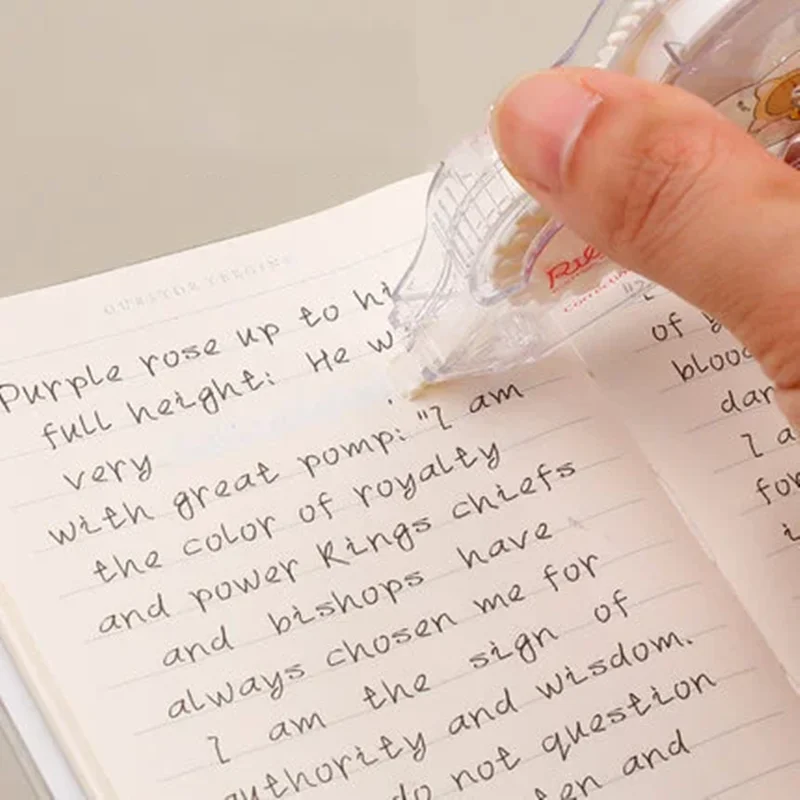 Purple rose up to hi
full height: He w
very
with great pomp: "I am
the color of royalty
and power Kings chiefs
and bishops have
always chosen me for
I am the sign of
authority and wisdom.
do not question
and
of